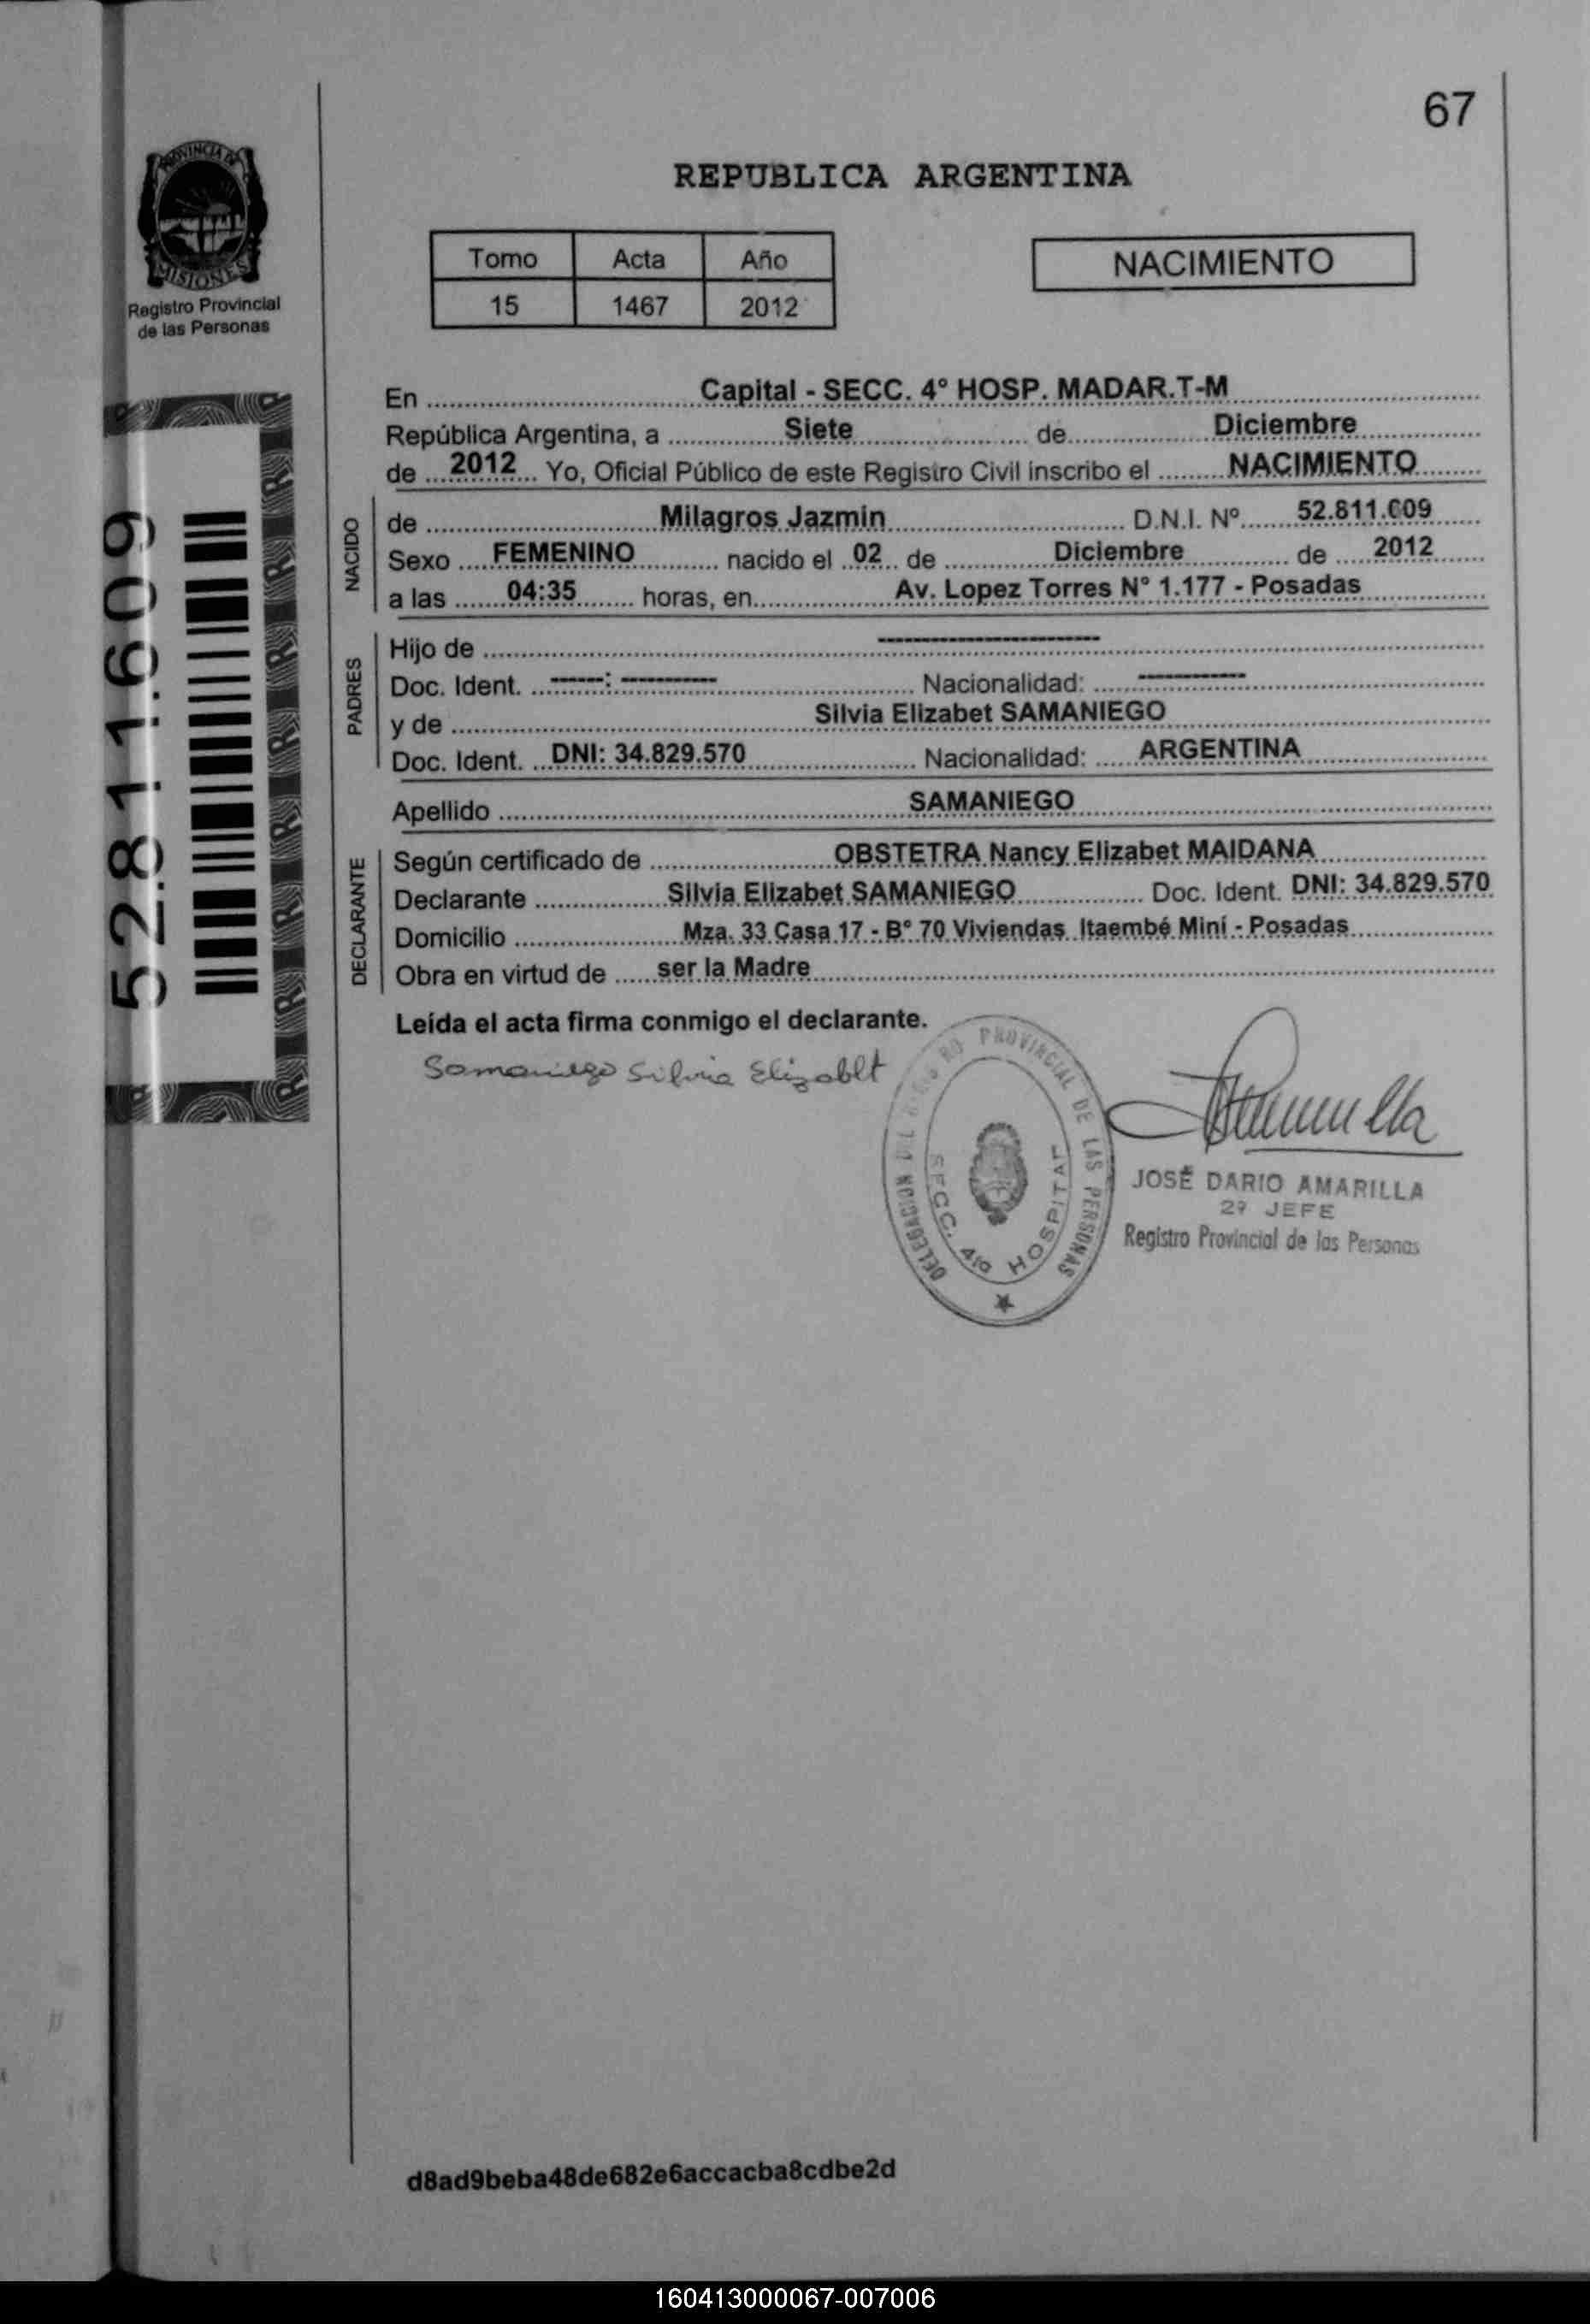 67
PROVINCIA DE
MISIONES
Registro Provincial
de las Personas
REPUBLICA ARGENTINA
Tomo Acta Año
15 1467 2012
NACIMIENTO
52.811.609
En Capital - SECC. 4º HOSP. MADAR.T-M
República Argentina, a Siete de Diciembre
de 2012 Yo, Oficial Público de este Registro Civil inscribo el NACIMIENTO
NACIDO
de Milagros Jazmin D.N.I. Nº 52.811.609
Sexo FEMENINO nacido el 02 de Diciembre de 2012
a las 04:35 horas, en Av. Lopez Torres Nº 1.177 - Posadas
PADRES
Hijo de ----------
Doc. Ident. -----: --------- Nacionalidad: ----------
y de Silvia Elizabet SAMANIEGO
Doc. Ident. DNI: 34.829.570 Nacionalidad: ARGENTINA
Apellido SAMANIEGO
DECLARANTE
Según certificado de OBSTETRA Nancy Elizabet MAIDANA
Declarante Silvia Elizabet SAMANIEGO Doc. Ident. DNI: 34.829.570
Domicilio Mza. 33 Casa 17 - Bº 70 Viviendas Itaembé Mini - Posadas
Obra en virtud de ser la Madre
Leída el acta firma conmigo el declarante.
Samaniego Silvia Elizabet
PROVINCIAL DE LAS PERSONAS
DELEGACION
SECC. 4ta HOSPITAL
JOSÉ DARIO AMARILLA
2º JEFE
Registro Provincial de las Personas
d8ad9beba48de682e6accacba8cdbe2d
160413000067-007006